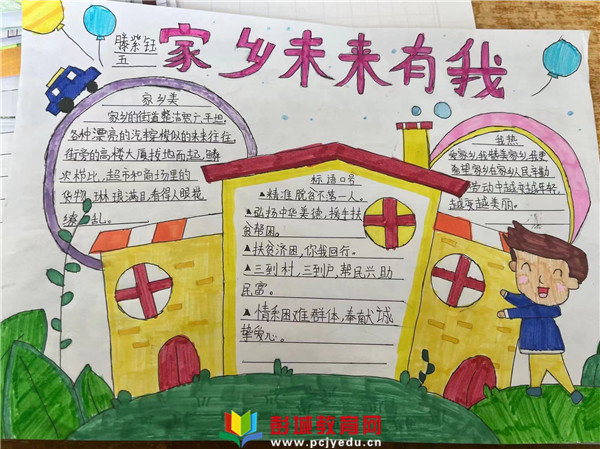 家乡未来有我
滕紫钰
五
家乡美
家乡的街道整洁宽广,平坦,
各种漂亮的汽车
街旁的高楼大厦拔地而起,鳞
次栉比,超市和商场里的
货物,琳琅满目,看得人眼花
缭乱。
标语口号
▲精准脱贫不落一人。
▲弘扬中华美德,携手扶
贫帮困。
▲扶贫济困,你我同行。
▲三到村,三到户,帮民兴助
民富。
▲情系困难群体,奉献诚
挚爱心。
我热
爱家乡,我赞美家乡,我更
希望家乡在家乡人民辛勤
劳动中越变越年轻,
越变越美丽。
彭城教育网
www.pcjyedu.cn